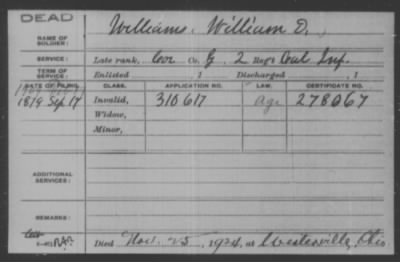 DEAD
NAME OF SOLDIER: Williams, William D.
SERVICE: Late rank, Cor Co. G, 2 Reg't Inf.
TERM OF SERVICE: Enlisted , 1 Discharged , 1
DATE OF FILING. CLASS. APPLICATION NO. LAW. CERTIFICATE NO.
1879 Sep 17 Invalid, 310617 Age 278067
Widow,
Minor,
ADDITIONAL SERVICES:
REMARKS:
Died Nov. 25, 1924, at Westerville, Ohio